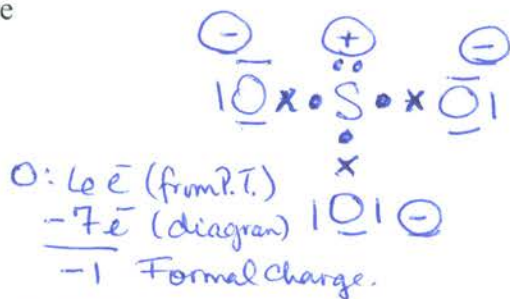 e
⊖ ⊕ ⊖
|O x • S • x O|
•
x
|O| ⊖
O: 6e⁻ (from P.T.)
−7e⁻ (diagran)
−1 Formal charge.